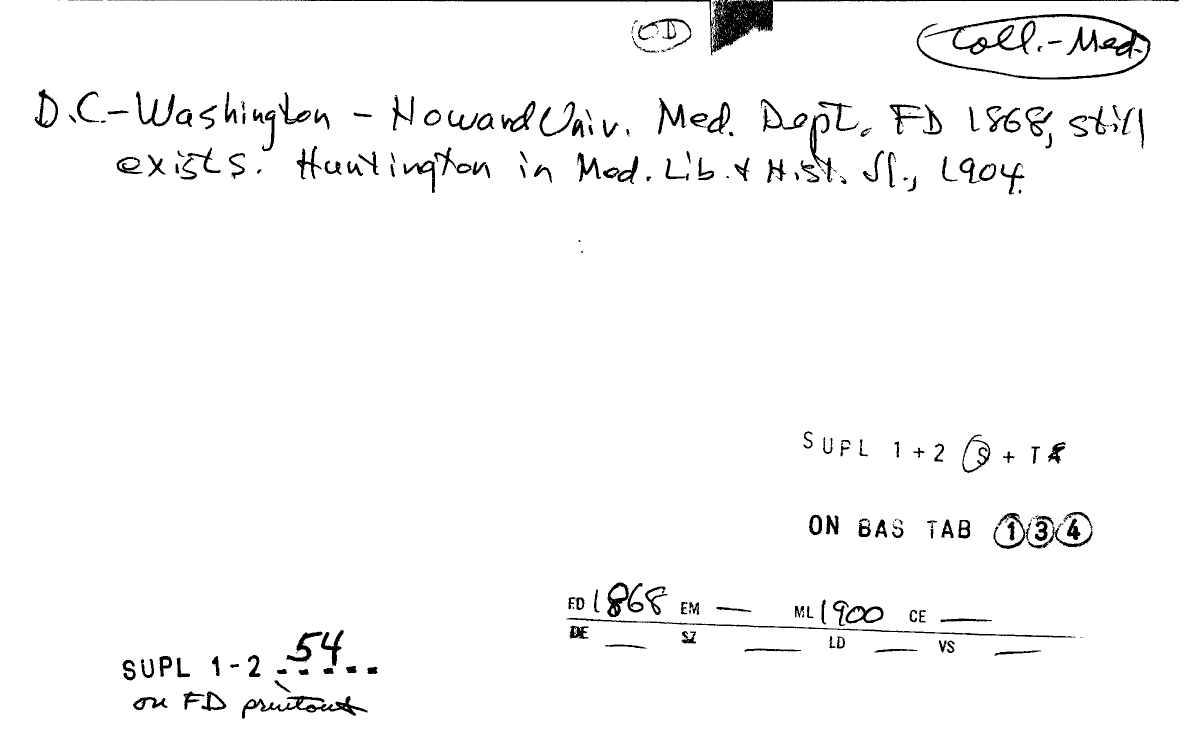 OD
Coll.-Med.
D.C-Washington - Howard Univ. Med. Dept. FD 1868, still
exists. Huntington in Med. Lib. & Hist. Jl., 1904.
SUPL 1+2 S + T
ON BAS TAB 1 3 4
FD 1868 EM — ML 1900 CE —
DE — SZ — LD — VS —
SUPL 1-2 54
on FD printout